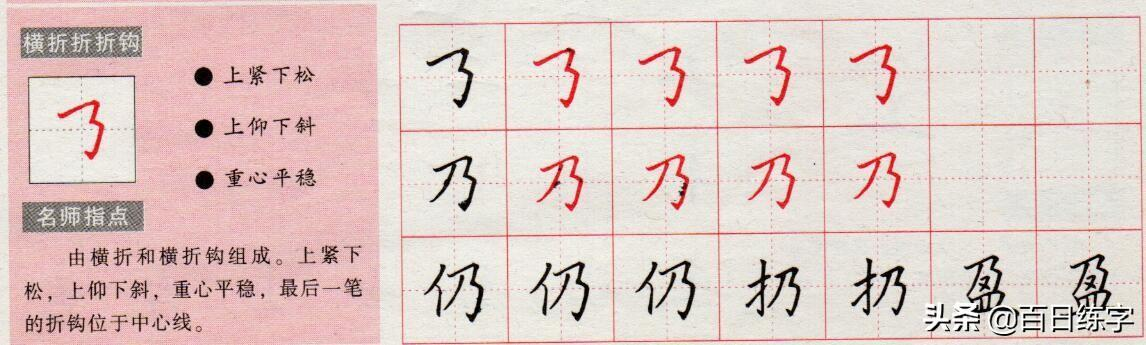 横折折折钩
上紧下松
上仰下斜
重心平稳
名师指点
由横折和横折钩组成。上紧下
松，上仰下斜，重心平稳，最后一笔
的折钩位于中心线。
𠄎 𠄎 𠄎 𠄎 𠄎
乃 乃 乃 乃 乃
仍 仍 仍 扔 扔 盈 盈
头条 @百日练字